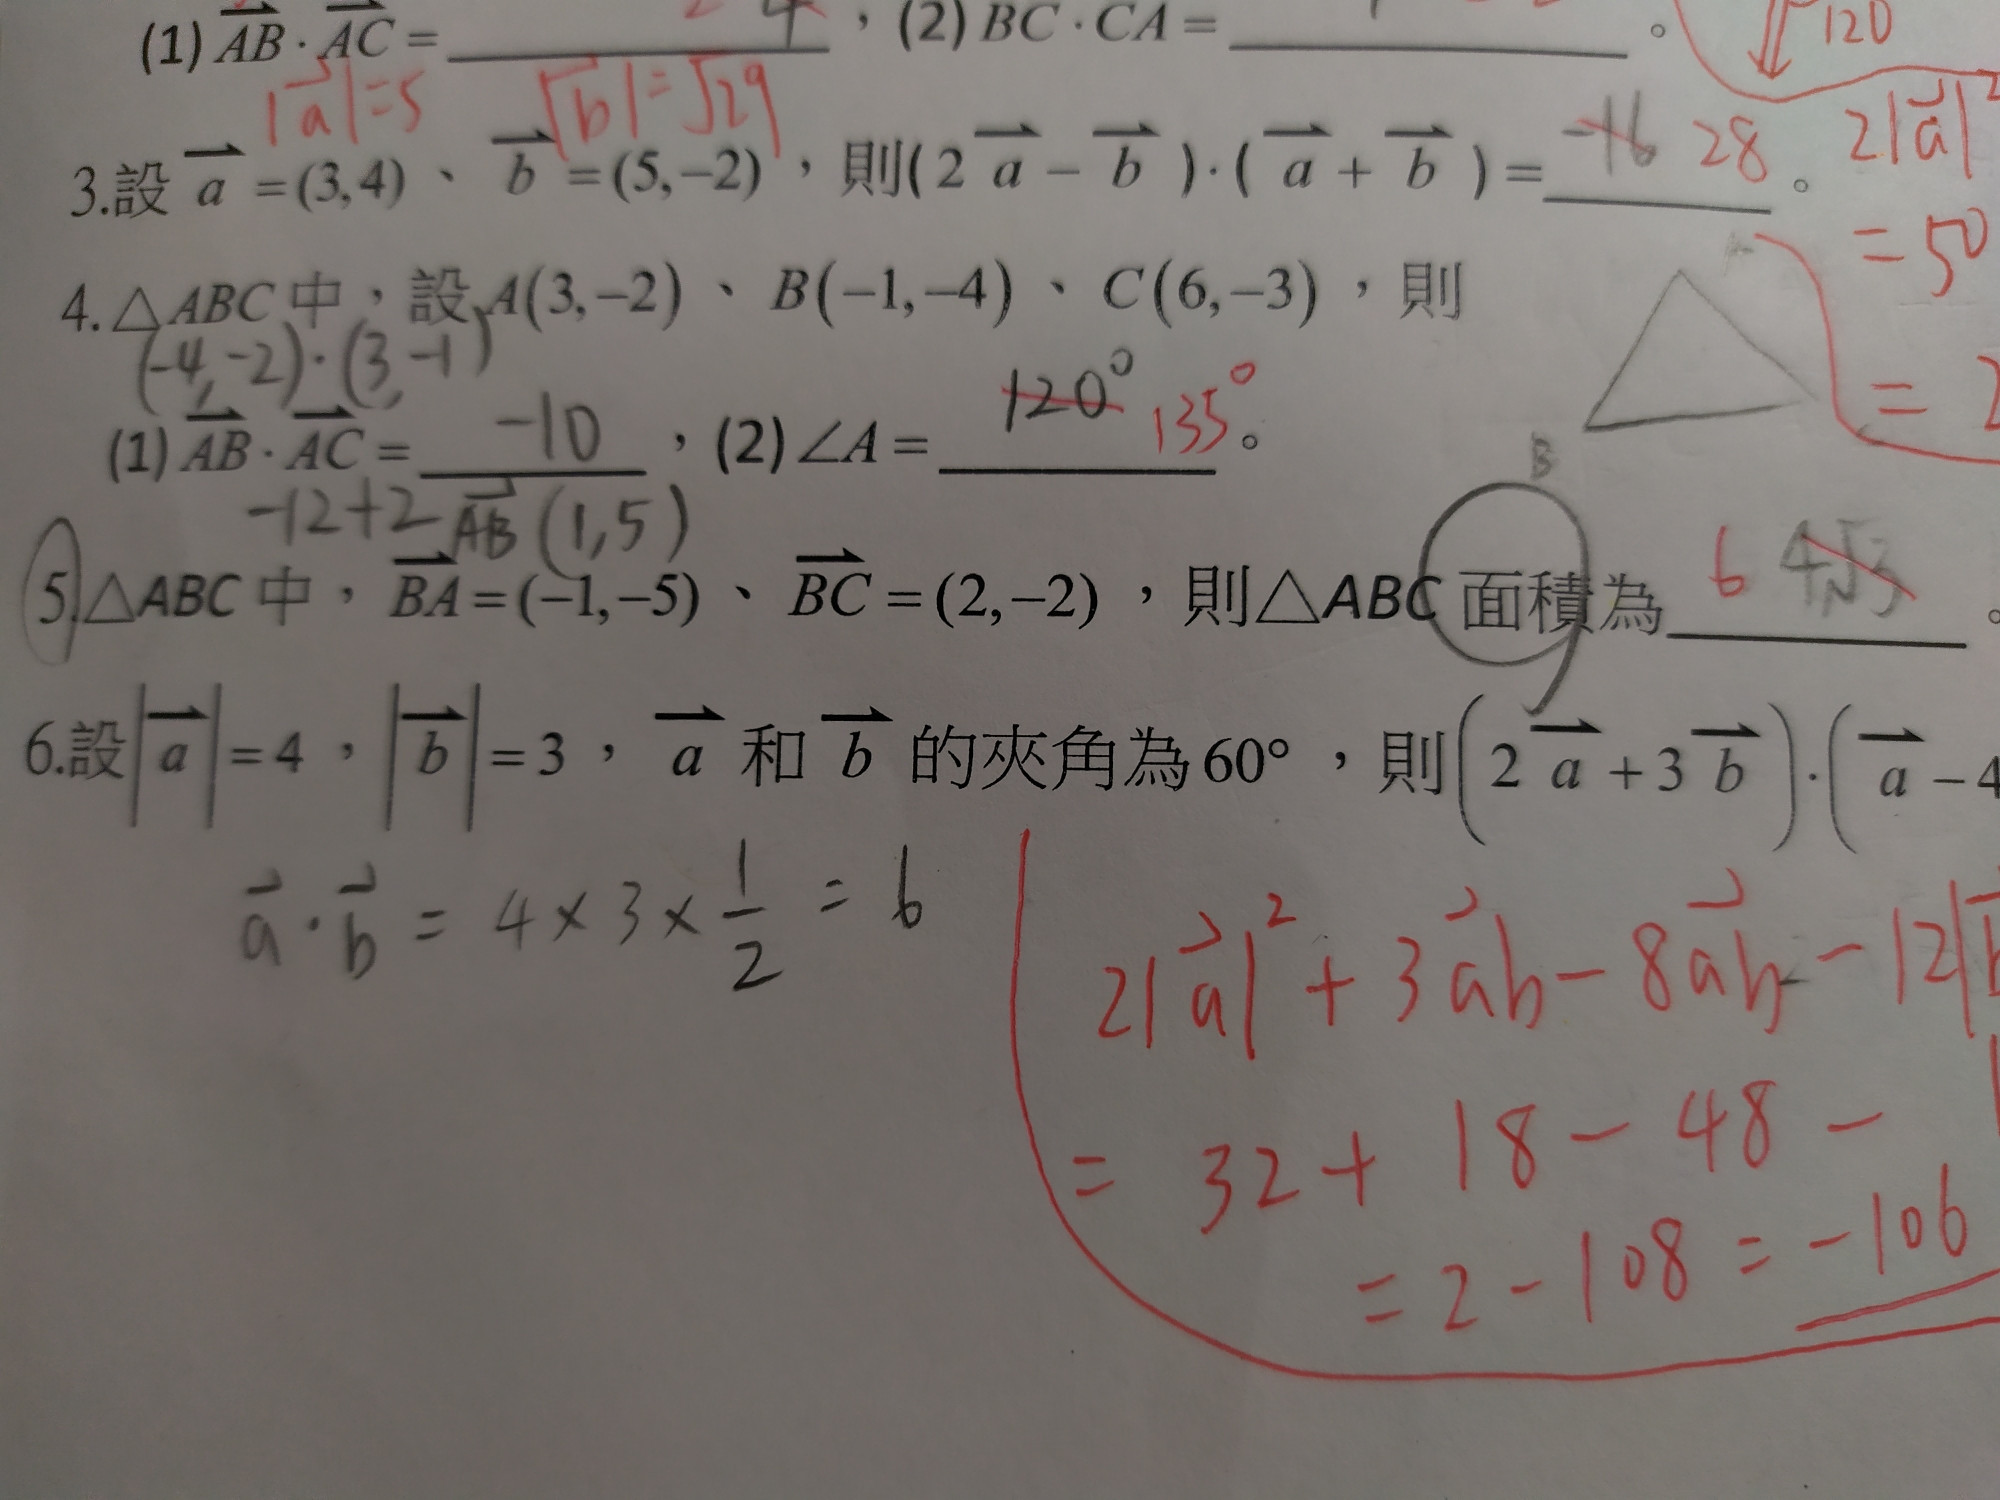 (1) AB · AC = 4 ，(2) BC · CA = 。 120
|a|=5 |b|=√29
3.設 a =(3,4)、 b =(5,−2)，則(2 a − b )·( a + b )= -16 28 。 2|a|²
= 50
4.△ABC 中，設 A(3,−2)、B(−1,−4)、C(6,−3)，則
(-4,-2)·(3,-1)
(1) AB · AC = -10 ，(2)∠A = 120° 135° 。
B
-12+2 AB (1,5)
5.△ABC 中，BA =(−1,−5)、BC =(2,−2)，則△ABC 面積為 6 4√3 。
6.設| a |=4，| b |=3， a 和 b 的夾角為60°，則(2 a +3 b )·( a −4
a·b = 4×3×1/2 = 6
2|a|²+3ab−8ab−12|b
= 32+18−48−
= 2−108=−106